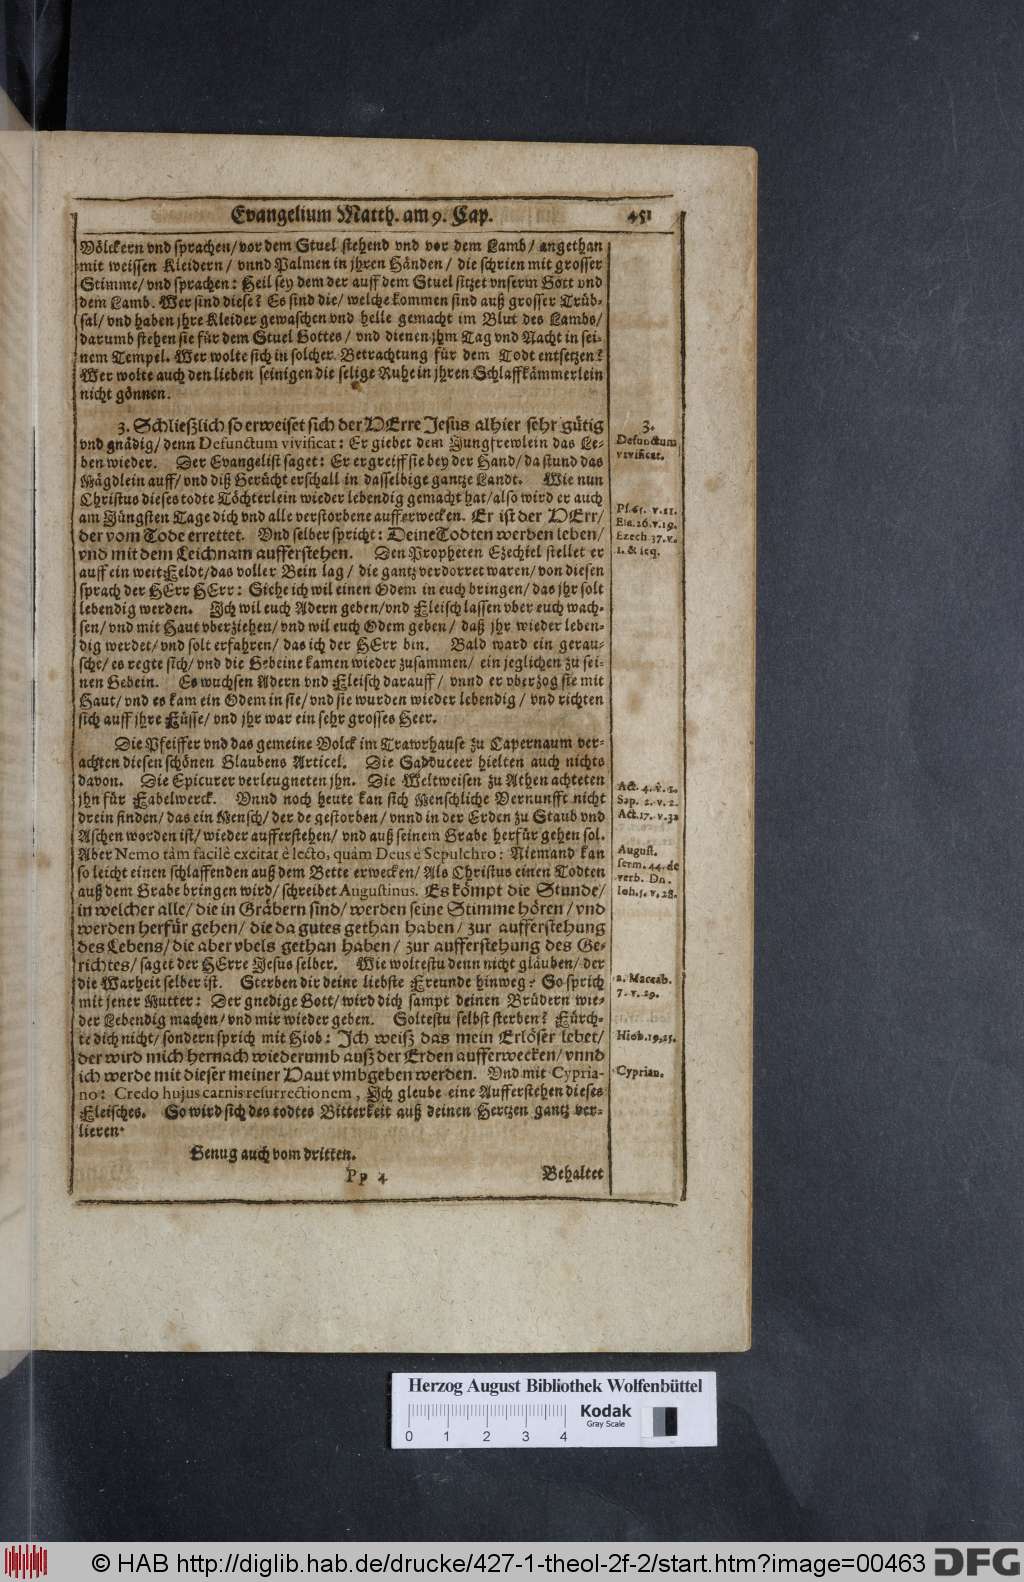 Evangelium Matth. am 9. Cap. 451
Völckern vnd sprachen/ vor dem Stuel stehend vnd vor dem Lamb/ angethan
mit weissen Kleidern/ vnnd Palmen in jhren Händen/ die schrien mit grosser
Stimme/ vnd sprachen: Heil sey dem der auff dem Stuel sitzet vnserm Gott vnd
dem Lamb. Wer sind diese? Es sind die/ welche kommen sind auß grosser Trüb-
sal/ vnd haben jhre Kleider gewaschen vnd helle gemacht im Blut des Lambs/
darumb stehen sie für dem Stuel Gottes/ vnd dienen jhm Tag vnd Nacht in sei-
nem Tempel. Wer wolte sich in solcher Betrachtung für dem Todt entsetzen?
Wer wolte auch den lieben seinigen die selige Ruhe in jhren Schlaffkämmerlein
nicht gönnen.
3. Schließlich so erweiset sich der HErre Jesus alhier sehr gütig
vnd gnädig/ denn Defunctum vivificat: Er giebet dem Jungfrewlein das Le-
ben wieder. Der Evangelist saget: Er ergreiff sie bey der Hand/ da stund das
Mägdlein auff/ vnd diß Gerücht erschall in dasselbige gantze Landt. Wie nun
Christus dieses todte Töchterlein wieder lebendig gemacht hat/ also wird er auch
am Jüngsten Tage dich vnd alle verstorbene aufferwecken. Er ist der HErr/
der vom Tode errettet. Vnd selber spricht: Deine Todten werden leben/
vnd mit dem Leichnam aufferstehen. Den Propheten Ezechiel stellet er
auff ein weit Feldt/ das voller Bein lag/ die gantz verdorret waren/ von diesen
sprach der HErr HErr: Siehe ich wil einen Odem in euch bringen/ das jhr solt
lebendig werden. Ich wil euch Adern geben/ vnd Fleisch lassen vber euch wach-
sen/ vnd mit Haut vberziehen/ vnd wil euch Odem geben/ daß jhr wieder leben-
dig werdet/ vnd solt erfahren/ das ich der HErr bin. Bald ward ein gerau-
sche/ es regte sich/ vnd die Gebeine kamen wieder zusammen/ ein jeglichen zu sei-
nen Gebein. Es wuchsen Adern vnd Fleisch darauff/ vnnd er vberzog sie mit
Haut/ vnd es kam ein Odem in sie/ vnd sie wurden wieder lebendig/ vnd richten
sich auff jhre Füsse/ vnd jhr war ein sehr grosses Heer.
Die Pfeiffer vnd das gemeine Volck im Trawrhause zu Capernaum ver-
achten diesen schönen Glaubens Articel. Die Sadduceer hielten auch nichts
davon. Die Epicurer verleugneten jhn. Die Weltweisen zu Athen achteten
jhn für Fabelwerck. Vnnd noch heute kan sich Menschliche Vernunfft nicht
drein finden/ das ein Mensch/ der de gestorben/ vnnd in der Erden zu Staub vnd
Aschen worden ist/ wieder aufferstehen/ vnd auß seinem Grabe herfür gehen sol.
Aber Nemo tàm facilè excitat è lecto, quàm Deus è Sepulchro: Niemand kan
so leicht einen schlaffenden auß dem Bette erwecken/ Als Christus einen Todten
auß dem Grabe bringen wird/ schreibet Augustinus. Es kömpt die Stunde/
in welcher alle/ die in Gräbern sind/ werden seine Stimme hören/ vnd
werden herfür gehen/ die da gutes gethan haben/ zur aufferstehung
des Lebens/ die aber vbels gethan haben/ zur aufferstehung des Ge-
richtes/ saget der HErre Jesus selber. Wie woltestu denn nicht gläuben/ der
die Warheit selber ist. Sterben dir deine liebste Freunde hinweg? So sprich
mit jener Mutter: Der gnedige Gott/ wird dich sampt deinen Brüdern wie-
der Lebendig machen/ vnd mir wieder geben. Soltestu selbst sterben? Fürch-
te dich nicht/ sondern sprich mit Hiob: Ich weiß das mein Erlöser lebet/
der wird mich hernach wiederumb auß der Erden aufferwecken/ vnnd
ich werde mit dieser meiner Haut vmbgeben werden. Vnd mit Cypria-
no: Credo hujus carnis resurrectionem, Ich gleube eine Aufferstehen dieses
Fleisches. So wird sich des todtes Bitterkeit auß deinen Hertzen gantz ver-
lieren.
Genug auch vom dritten.
Pp 4 Behaltet
3.
Defunctum
vivificat.
Ps. 65. v. 21.
Esa. 26. v. 19.
Ezech 37. v.
1. & seq.
Act. 4. v. 1.
Sap. 2. v. 2.
Act. 17. v. 32
August.
serm. 44. de
verb. Dn.
Ioh. 5. v. 28.
2. Maccab.
7. v. 29.
Hiob. 19, 25.
Cyprian.
Herzog August Bibliothek Wolfenbüttel
Kodak
Gray Scale
0 1 2 3 4
© HAB http://diglib.hab.de/drucke/427-1-theol-2f-2/start.htm?image=00463
DFG